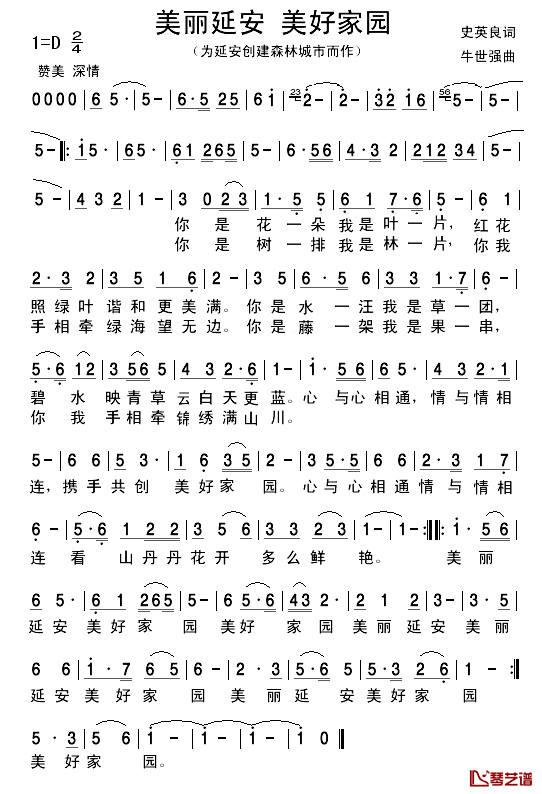 美丽延安 美好家园
（为延安创建森林城市而作）
1=D 2/4
史英良词
牛世强曲
赞美 深情
0000 | 6 5· | 5- | 6·5 25 | 6 i | 23 2- | 2· 3 | 32 i6 | 56 5- | 5- |
5- |: i5· | 6 5· | 61 265 | 5- | 6·56 | i 6 3 | 2 - | 212 34 | 5- |
5- | 4 3 2 | 1 - | 3 0 23 | 1·5 5 | 6·1 7·6 | 5- | 6 1 |
你 是 花 一 朵 我 是 叶 一 片，红 花
你 是 树 一 排 我 是 林 一 片，你 我
2·3 2 | 3 5 1 6 | 2- | 3 5 | 6·5 5 | 3 3 1·7 | 6- |
照 绿 叶 谐 和 更 美 满。你 是 水 一 汪 我 是 草 一 团，
手 相 牵 绿 海 望 无 边。你 是 藤 一 架 我 是 果 一 串，
5·6 12 | 3 56 5 | 4 3 2·6 | 1- | i· 5 | 6 5 6 | 4 3 2·1 |
碧 水 映 青 草 云 白 天 更 蓝。心 与 心 相 通，情 与 情 相
你 我 手 相 牵 锦 绣 满 山 川。
5- | 6 6 | 5 3· | 1 6 | 2 35 | 5- | 6 6 5 6 | 2·3 | 1 7 |
连，携 手 共 创 美 好 家 园。心 与 心 相 通 情 与 情 相
6- | 5·6 | 1 2 2 | 5 3 | 2·6 2 3 | 1- | 1- :||: i· 5 6 |
连 看 山 丹 丹 花 开 多 么 鲜 艳。 美 丽
6 5· | 6 1 265 | 5- | 5·6 43 | 2- | 2 3 | 3- | 5 6 |
延 安 美 好 家 园 美 好 家 园 美 丽 延 安
6 6· | i·7 6 5 | 6- | 5 6 | 5·3· | 5·3 2 6 | 1- |
延 安 美 好 家 园 美 丽 延 安 美 好 家 园
5· 3 | 2 6 | i- | i- | i- | i 0 ||
美 好 家 园。
琴艺谱